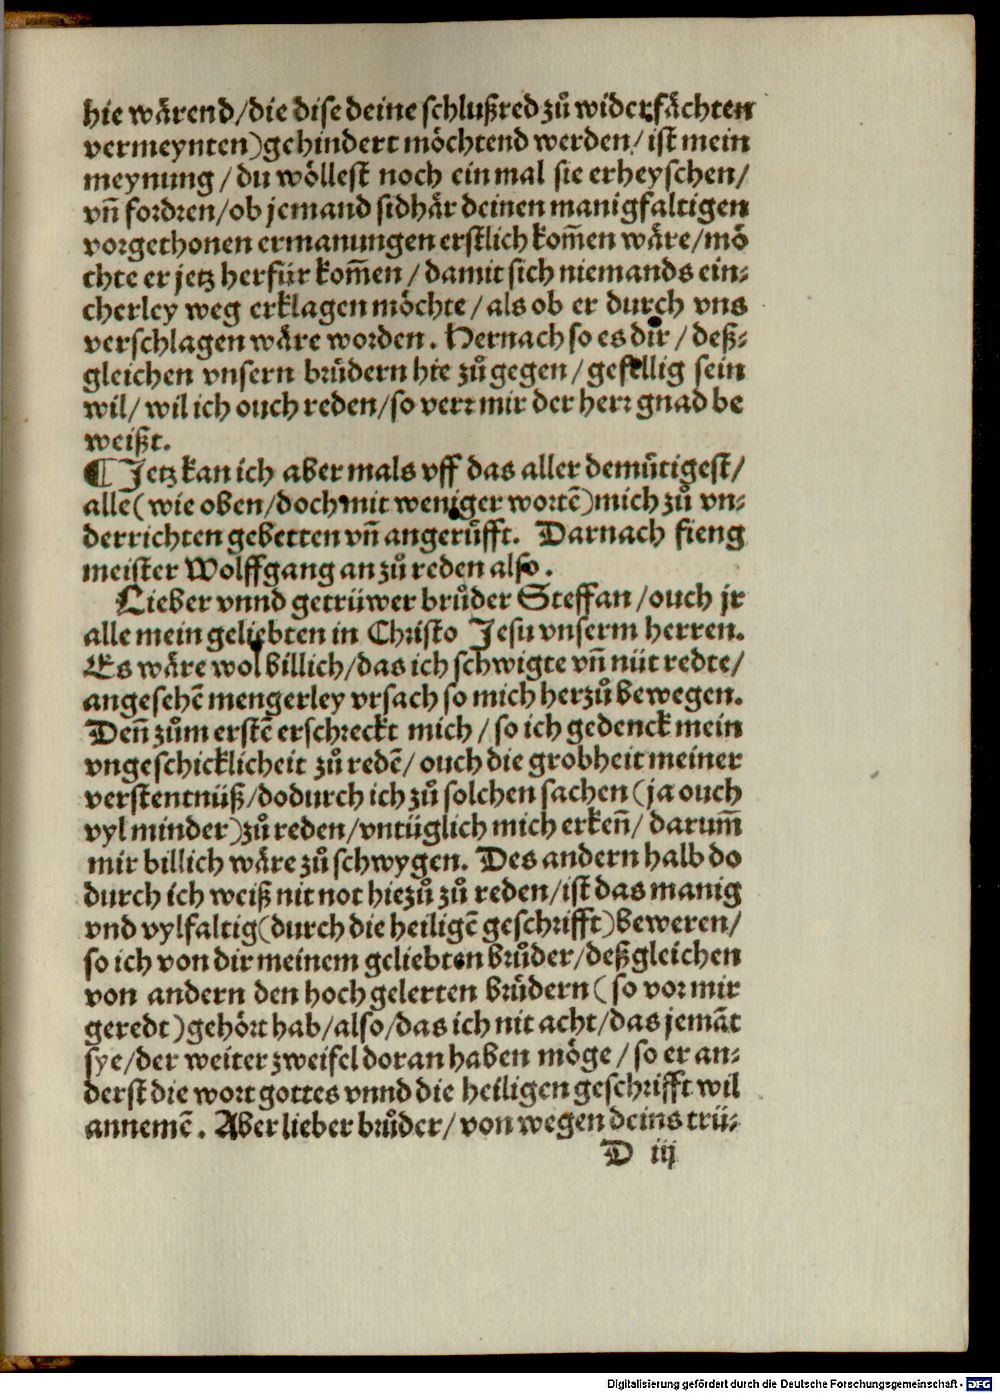 hie wårend/die dise deine schlußred zů widerfåchten
vermeynten)gehindert möchtend werden/ ist mein
meynung/du wöllest noch ein mal sie erheyschen/
vñ fordren/ob jemand sidhår deinen manigfaltigen
vorgethonen ermanungen erstlich kom̃en wåre/mö
chte er jetz herfür kom̃en/damit sich niemands ein⸗
cherley weg erklagen möchte/als ob er durch vns
verschlagen wåre worden. Hernach so es dir/deß⸗
gleichen vnsern brůdern hie zů gegen/gefellig sein
wil/wil ich ouch reden/so verr mir der herr gnad be
weißt.
¶ Jetz kan ich aber mals vff das aller demůtigest/
allẽ(wie oben/doch mit weniger wortẽ)mich zů vn⸗
derrichten gebetten vñ angerůfft. Darnach fieng
meister Wolffgang an zů reden also.
Lieber vnnd getrüwer brůder Steffan/ouch jr
alle mein geliebten in Christo Jesu vnserm herren.
Es wåre wol billich/das ich schwigte vñ nüt redte/
angesehẽ mengerley vrsach so mich herzů bewegen.
Deñ zům erstẽ erschreckt mich/so ich gedenck mein
vngeschicklicheit zů redẽ/ouch die grobheit meiner
verstentnüß/dodurch ich zů solchen sachen(ja ouch
vyl minder)zů reden/vntüglich mich erkeñ/darum̃
mir billich wåre zů schwygen. Des andern halb do
durch ich weiß nit not hiezů zů reden/ist das manig
vnd vylfaltig(durch die heiligẽ geschrifft)beweren/
so ich von dir meinem geliebten brůder/deßgleichen
von andern den hoch gelerten brůdern(so vor mir
geredt)gehört hab/also/das ich nit acht/das jemãt
sye/der weiter zweifel doran haben möge/so er an⸗
derst die wort gottes vnnd die heiligen geschrifft wil
annemẽ. Aber lieber brůder/von wegen deins trü⸗
D iij
Digitalisierung gefördert durch die Deutsche Forschungsgemeinschaft - DFG